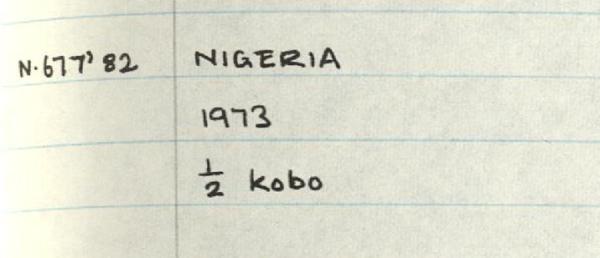 N.677' 82 NIGERIA
1973
½ kobo